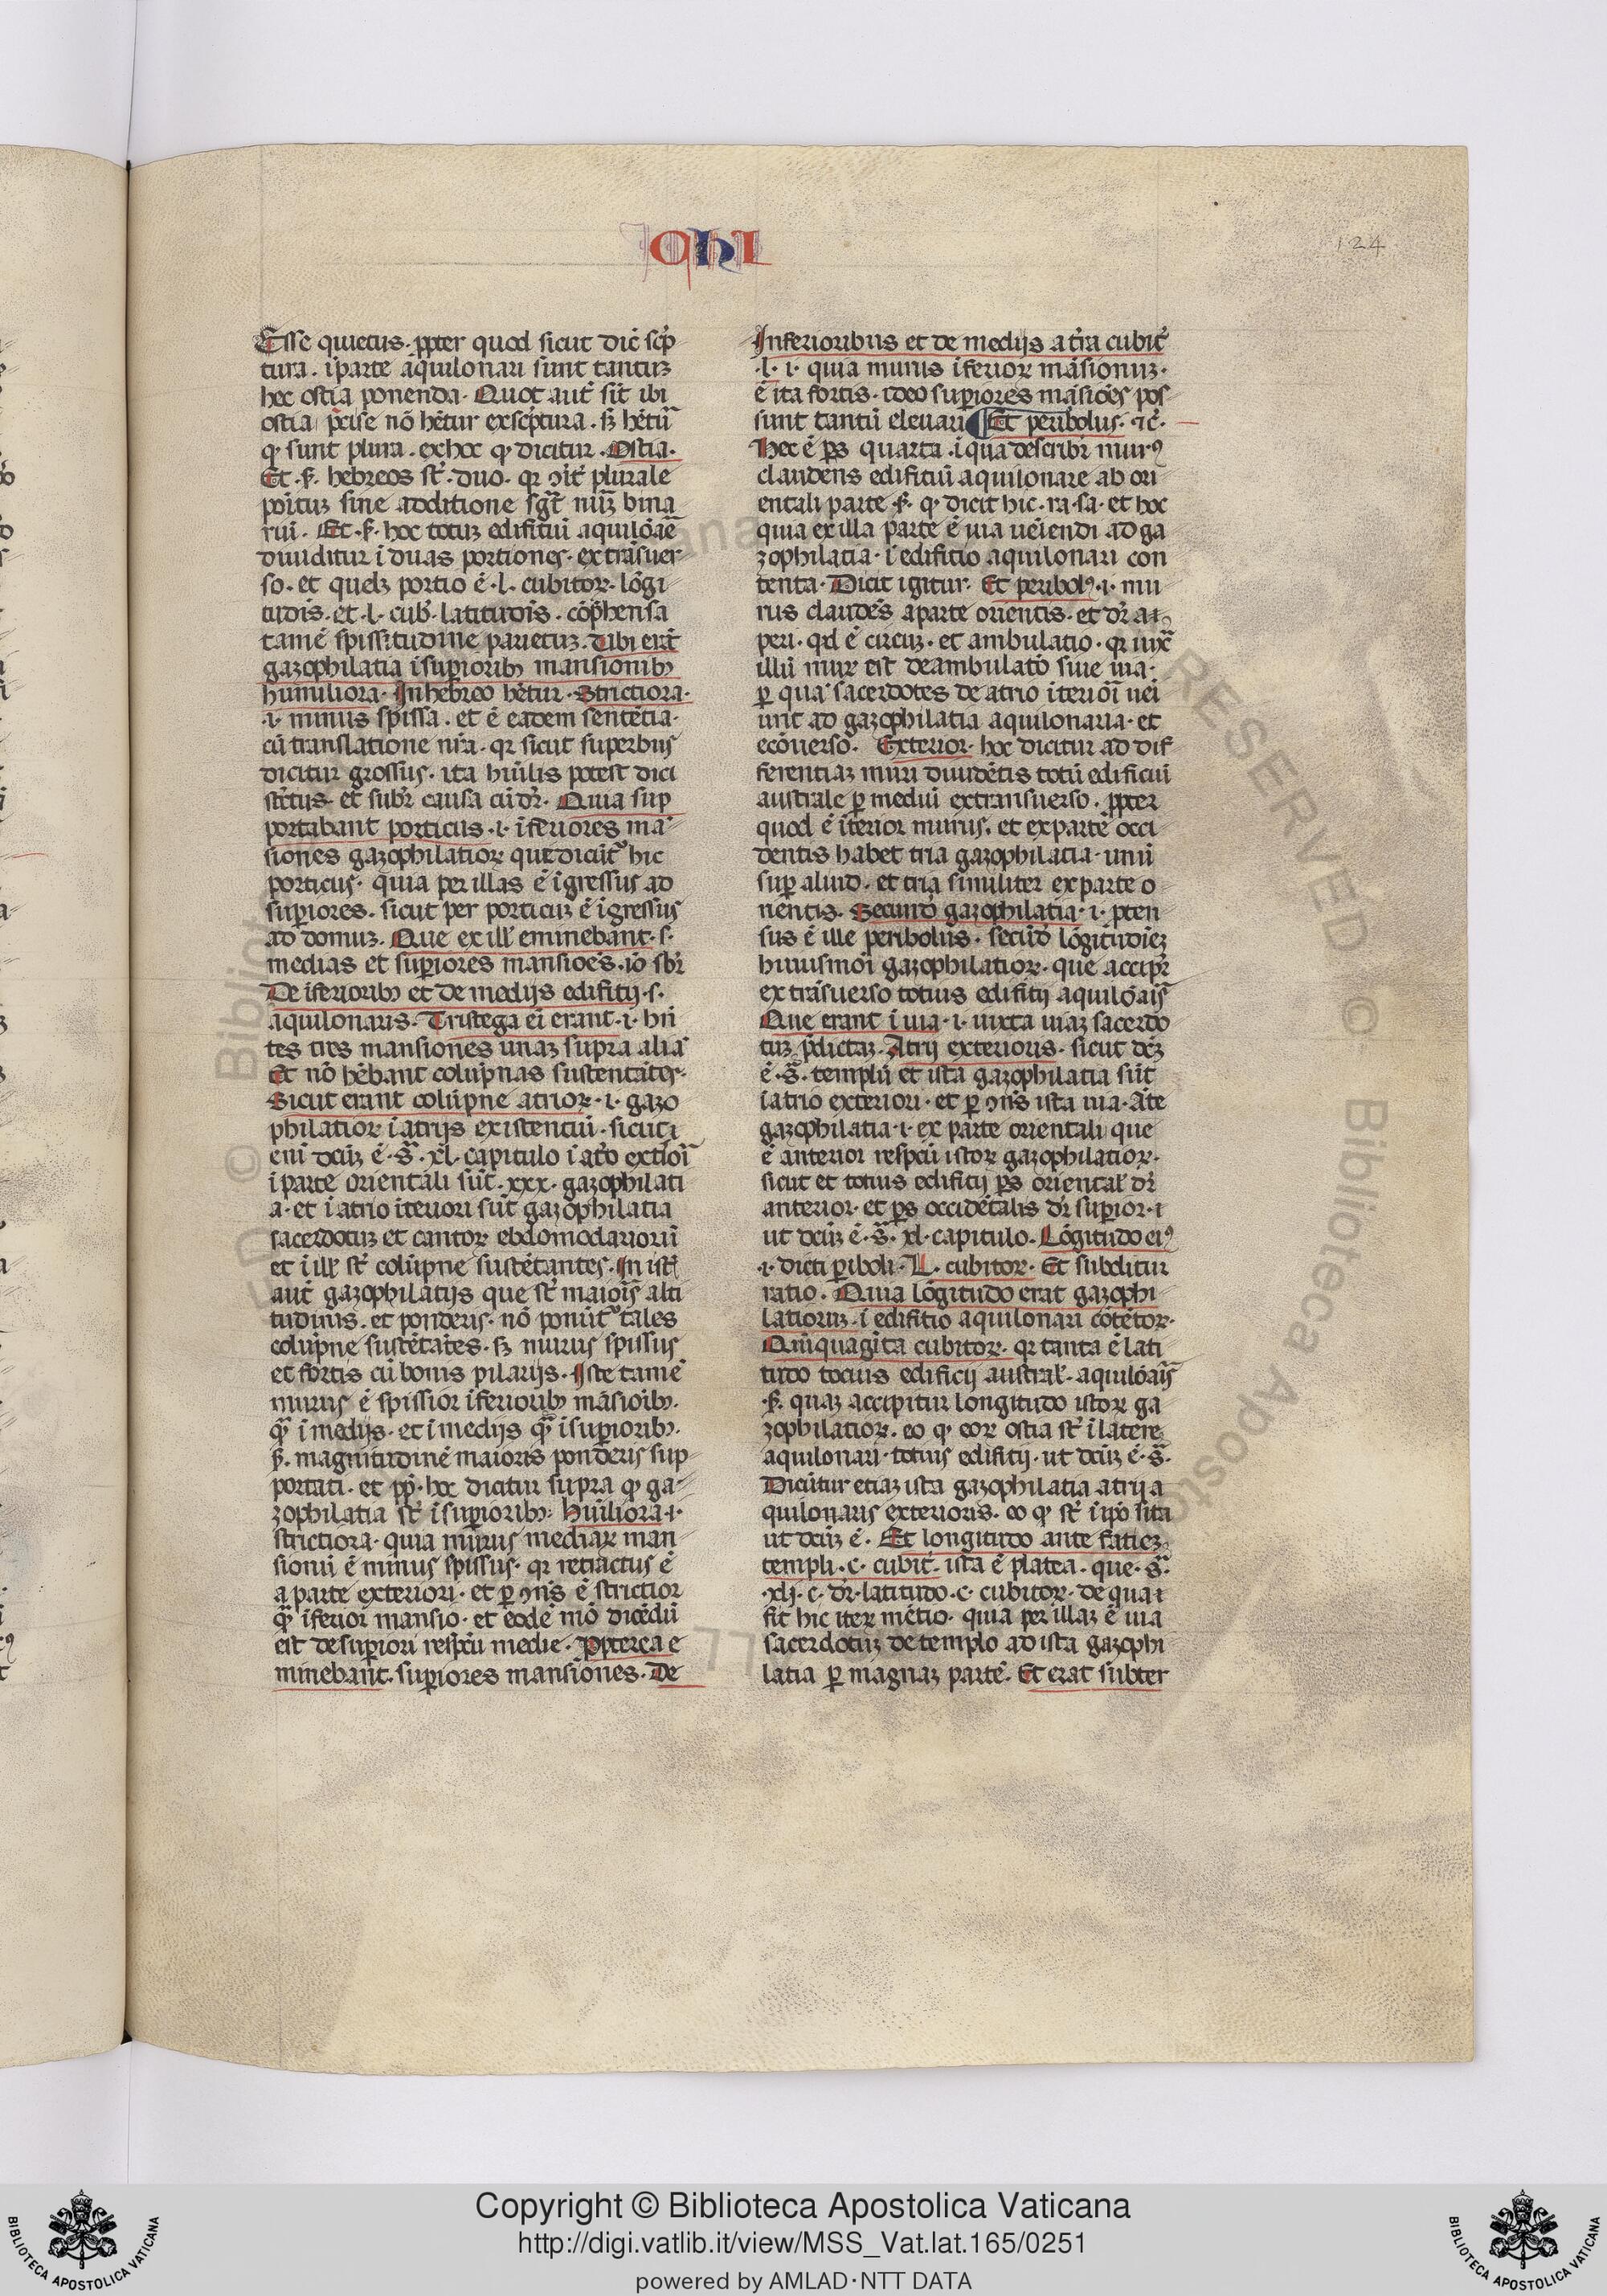 QHI
124
Esse quietus. ꝓpter quod sicut dic̄ scͥp
tura. ī parte aquilonari sunt tantuꝫ
hec ostia ponenda. Quot aut̄ sīt ibi
ostia p̄cise nō hētur ex scͥptura. sꝫ hētur
ꝙ sunt plura. ex hoc ꝙ dicitur. Ostia.
Et .s. hebreos st̄. duo. qr̄ ꝯīt plurale
poītuꝫ sine additione sgt̄ nūꝫ bina
riū. Et .s. hoc totuꝫ edifitiū aquilōaē
diuiditur ī duas portiones. ex trāsuer
so. et quelꝫ portio ē .l. cubitoꝝ. lōgi
tudīs. et .l. cub̄. latitudīs. cōp̄hensa
tamē spissitudine parietuꝫ. Vbi erāt
gazophilatia ī suꝑioribꝫ mansionibꝫ
humiliora. In hebreo hētur. Strictiora.
.i. minus spissa. et ē eadem sentētia.
cū translatione nr̄a. qr̄ sicut superbus
dicitur grossus. ita hūilis potest dici
stͥctus. et subr̄ causa cū dr̄. Quia sup
portabant porticus .i. īferiores mā
siones gazophilatioꝝ que dicūt᷑ hic
porticus. quia per illas ē īgressus ad
suꝑiores. sicut per porticuꝫ ē īgressus
ad domuꝫ. Que ex ill̄ eminebant .s.
medias et suꝑiores mansioēs. iō sbr̄
De īferioribꝫ et de medijs edifitij .s.
aquilonaris. Tristega eī erant .i. hn̄
tes tres mansiones unaꝫ supra aliā
Et nō hēbant colūpnas sustentātes.
Sicut erant colūpne atrioꝝ .i. gazo
philatioꝝ ī atrijs existentiū. sicut
enī dcūꝫ ē .s̄. xl. capitulo ī atͥo extīoī
ī parte orientali sūt .xxx. gazophilati
a. et ī atrio īteriori sūt gazophilatia
sacerdotuꝫ et cantoꝝ ebdomodarioꝝ
et ī ill̄ st̄ colūpne sustētantes. In istꝭ
aut̄ gazophilatijs que st̄ maioīs alti
tudinis. et ponderis. nō ponūt᷑ tales
colūpne sustētātes. sꝫ murus spissus
et fortis cū bonis pilarijs. Iste tamē
murus ē spissior īferioribꝫ māsioībꝫ.
qͣ̄ ī medijs. et ī medijs qͣ̄ ī suꝑioribꝫ.
.s. magnitudinē maioris ponderis sup
portati. et ꝓp̄. hoc dicitur supra ꝙ ga
zophilatia st̄ ī suꝑioribꝫ. hūiliora .i.
strictiora. quia murus mediaꝝ man
sionū ē minus spissus. qr̄ retractus ē
a parte exteriori. et ꝑ ꝯn̄s ē strictior
qͣ̄ īferior mansio. et eodē mō dicēdū
est de suꝑiori respcū medie. Ꝓpterea e
minebant. suꝑiores mansiones. De
Inferioribus et de medijs a tr̄a cubit̄
.l. i. quia murus īferioꝝ māsionuꝫ.
ē ita fortis. ideo suꝑiores māsioēs pos
sunt tantū eleuari ¶ Et peribolus. ⁊c̄.
Hec ē ps̄ quarta. ī qua describr̄ murꝰ
claudens edifitiū aquilonare ab ori
entali parte .s. ꝙ dicit hic. ra. sa. et hoc
quia ex illa parte ē uia ueīendi ad ga
zophilatia. ī edifitio aquilonari con
tenta. Dicit igitur. Et peribolꝰ .i. mu
rus claudēs a parte orientis. et dr̄ a
peri. qd̄ ē circuꝫ. et ambulatio. qr̄ iuxͣ
illū muꝝ est deambulatō siue uia.
ꝑ quā sacerdotes de atrio īterioī uei
unt ad gazophilatia aquilonaria. et
ecōuerso. Exterior. hoc dicitur ad dif
ferentiaꝫ muri diuidētis totū edificiū
australe ꝑ mediū ex transuerso. ꝓpter
quod ē īterior murus. et ex parte occi
dentis habet tria gazophilacia. unū
suꝑ aliud. et tria similiter ex parte o
rientis. Secundū gazophilatia .i. pten
sus ē ille peribolus. secūdō lōgitudīeꝫ
huiusmōi gazophilatioꝝ. que accipr̄
ex trāsuerso totius edifitij aquilōaīs
Que erant ī uia .i. iuxta uiaꝫ sacerdo
tuꝫ p̄dictaꝫ. Atrij exterioris. sicut dcūꝫ
ē .s̄. templū et ista gazophilatia sūt
ī atrio exteriori. et ꝑ ꝯn̄s ista uia. Āte
gazophilatia .i. ex parte orientali que
ē anterior respcū istoꝝ gazophilatioꝝ.
sicut et totius edifitij ps̄ oriental̄ dr̄
anterior. et ps̄ occidētalis dr̄ suꝑior.
ut dcūꝫ ē .s̄. xl. capitulo. Lōgitudo eiꝰ
.i. dicti ꝑiboli. L. cubitoꝝ. Et subditur
ratio. Quia lōgitudo erat gazophi
latioruꝫ. ī edifitio aquilonari cōtētoꝝ.
Quīquagīta cubitoꝝ. qr̄ tanta ē lati
tudo tocius edificij austral̄. aquilōaīs
.s. quaꝫ accipitur longitudo istoꝝ ga
zophilatioꝝ. eo ꝙ eoꝝ ostia st̄ ī latere
aquilonari. totius edifitij. ut dcūꝫ ē .s̄.
Dicūtur etiaꝫ ista gazophilatia atrij a
quilonaris exterioris. eo ꝙ st̄ ī ip̄o sita
ut dcūꝫ ē. Et longitudo ante fatieꝫ
templi .c. cubit̄. ista ē platea. que .s̄.
.xlj. c. dr̄. latitudo .c. cubitoꝝ. de qua
fit hic iteꝝ mētio. quia per illaꝫ ē uia
sacerdotuꝫ de templo ad ista gazophi
latia ꝑ magnaꝫ partē. Et erat subter
Copyright © Biblioteca Apostolica Vaticana
http://digi.vatlib.it/view/MSS_Vat.lat.165/0251
powered by AMLAD·NTT DATA